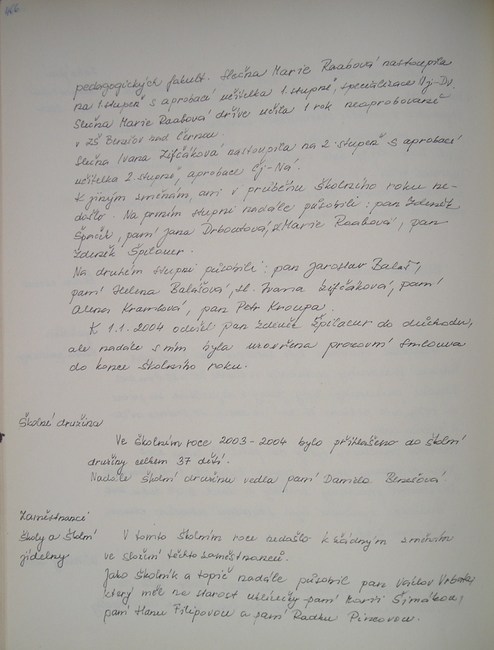 pedagogických fakult. Slečna Marie Raabová nastoupila
na 1. stupeň s aprobací učitelka 1. stupně, specializace
Slečna Marie Raabová dříve učila 1 rok neaprobovaně
v ZŠ Benešov nad Černou.
Slečna Ivana Zifčáková nastoupila na 2. stupeň s aprobací
učitelka 2. stupně, aprobace Čj-Ná.
K jiným změnám, ani v průběhu školního roku ne-
došlo. Na prvním stupni nadále působili: pan Zdeněk
pani Jana Drboutová, Marie Raabová, pan
Zdeněk Špilauer.
Na druhém stupni působili: pan Jaroslav Balát,
paní Helena Balátová, sl. Ivana Zifčáková, paní
Alena Kramlová, pan Petr Kroupa.
K 1.1. 2004 odešel pan Zdeněk Špilauer do důchodu,
ale nadále s ním byla uzavřena pracovní smlouva
do konce školního roku.
Školní družina
Ve školním roce 2003-2004 bylo přihlášeno do školní
družiny celkem 37 dětí.
Nadále školní družinu vedla paní Daniela Benešová
Zaměstnanci
školy a školní
jídelny
V tomto školním roce nedošlo k žádným změnám
ve složení těchto zaměstnanců.
Jako školník a topič nadále působil pan Václav Vrbata,
který měl na starost uklízečky paní Marii Šimákovou,
paní Hanu Filipovou a paní Radku Pinzovou.